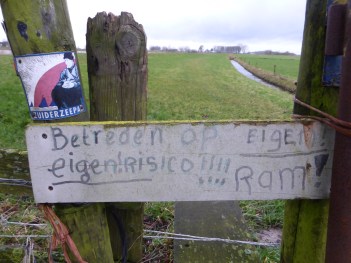 ZUIDERZEEPAD
Betreden op EIGEN!
eigen risico !!!! Ram!